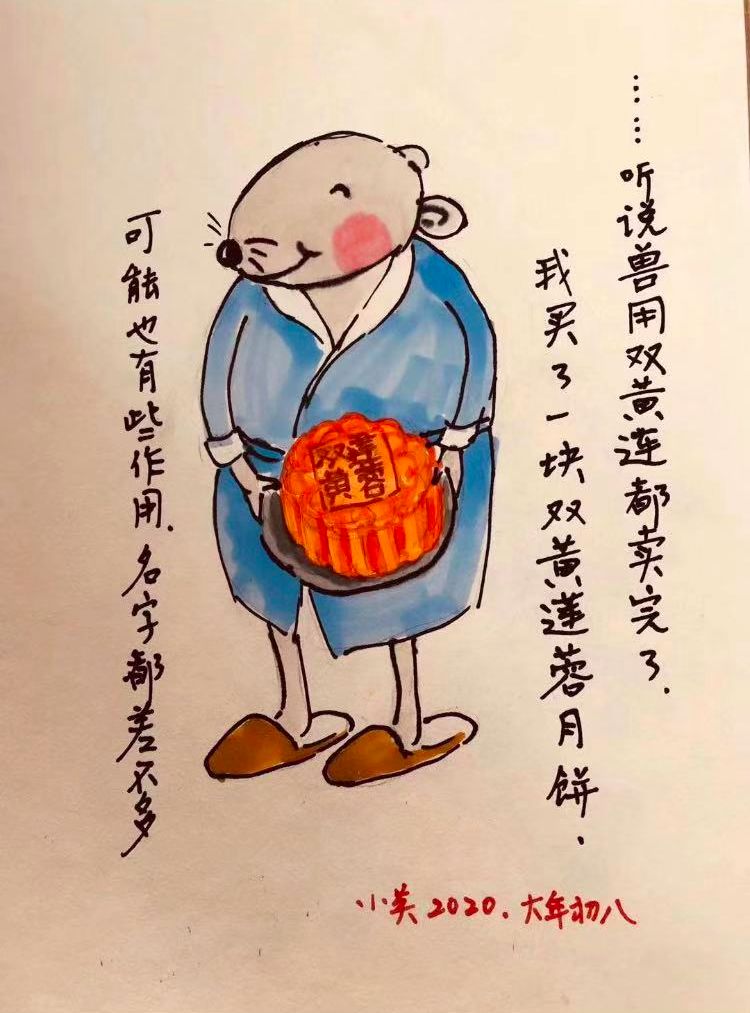 ……听说兽用双黄连都卖完了.
我买了一块双黄莲蓉月饼.
莲蓉
双黄
可能也有些作用.名字都差不多
小英2020.大年初八